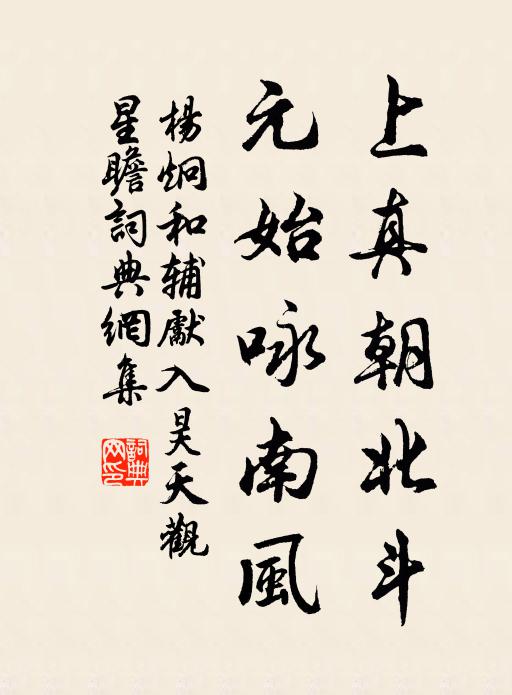 上真朝北斗
元始咏南風
楊炯和輔獻入昊天觀
星瞻詞典網集
詞典網印